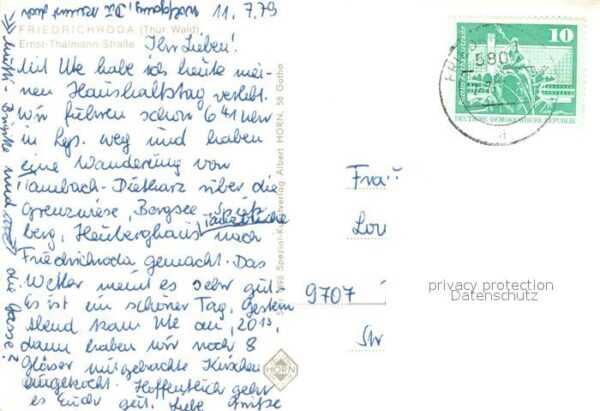 Wetter! DZ kommt von 11.7.79
FRIEDRICHRODA (Thür. Wald)
Ernst-Thälmann-Straße
Ihr Lieben!
Mit Ute habe ich heute mei-
nen Haushaltstag verlebt.
Wir fuhren schon 6 41 Uhr
in Lpz. weg und haben
eine Wanderung von
Tambach-Dietharz über die
Grenzwiese, Bergsee, Spieß-
berg, Heuberghaus nach
Friedrichroda gemacht. Das
Wetter meint es sehr gut.
Es ist ein schöner Tag. Gestern
Abend kam Ute an, 20 13,
dann haben wir noch 8
Gläser mitgebrachte Kirschen
eingekocht. Hoffentlich geht
es Euch gut. Liebe Grüße
Mutti - Brigitte und
die Gasse?
Spezial-Kunstverlag Albert HORN, 58 Gotha
HORN
10
DEUTSCHE DEMOKRATISCHE REPUBLIK
580
Frau
Lou
9707
Str
privacy protection
Datenschutz